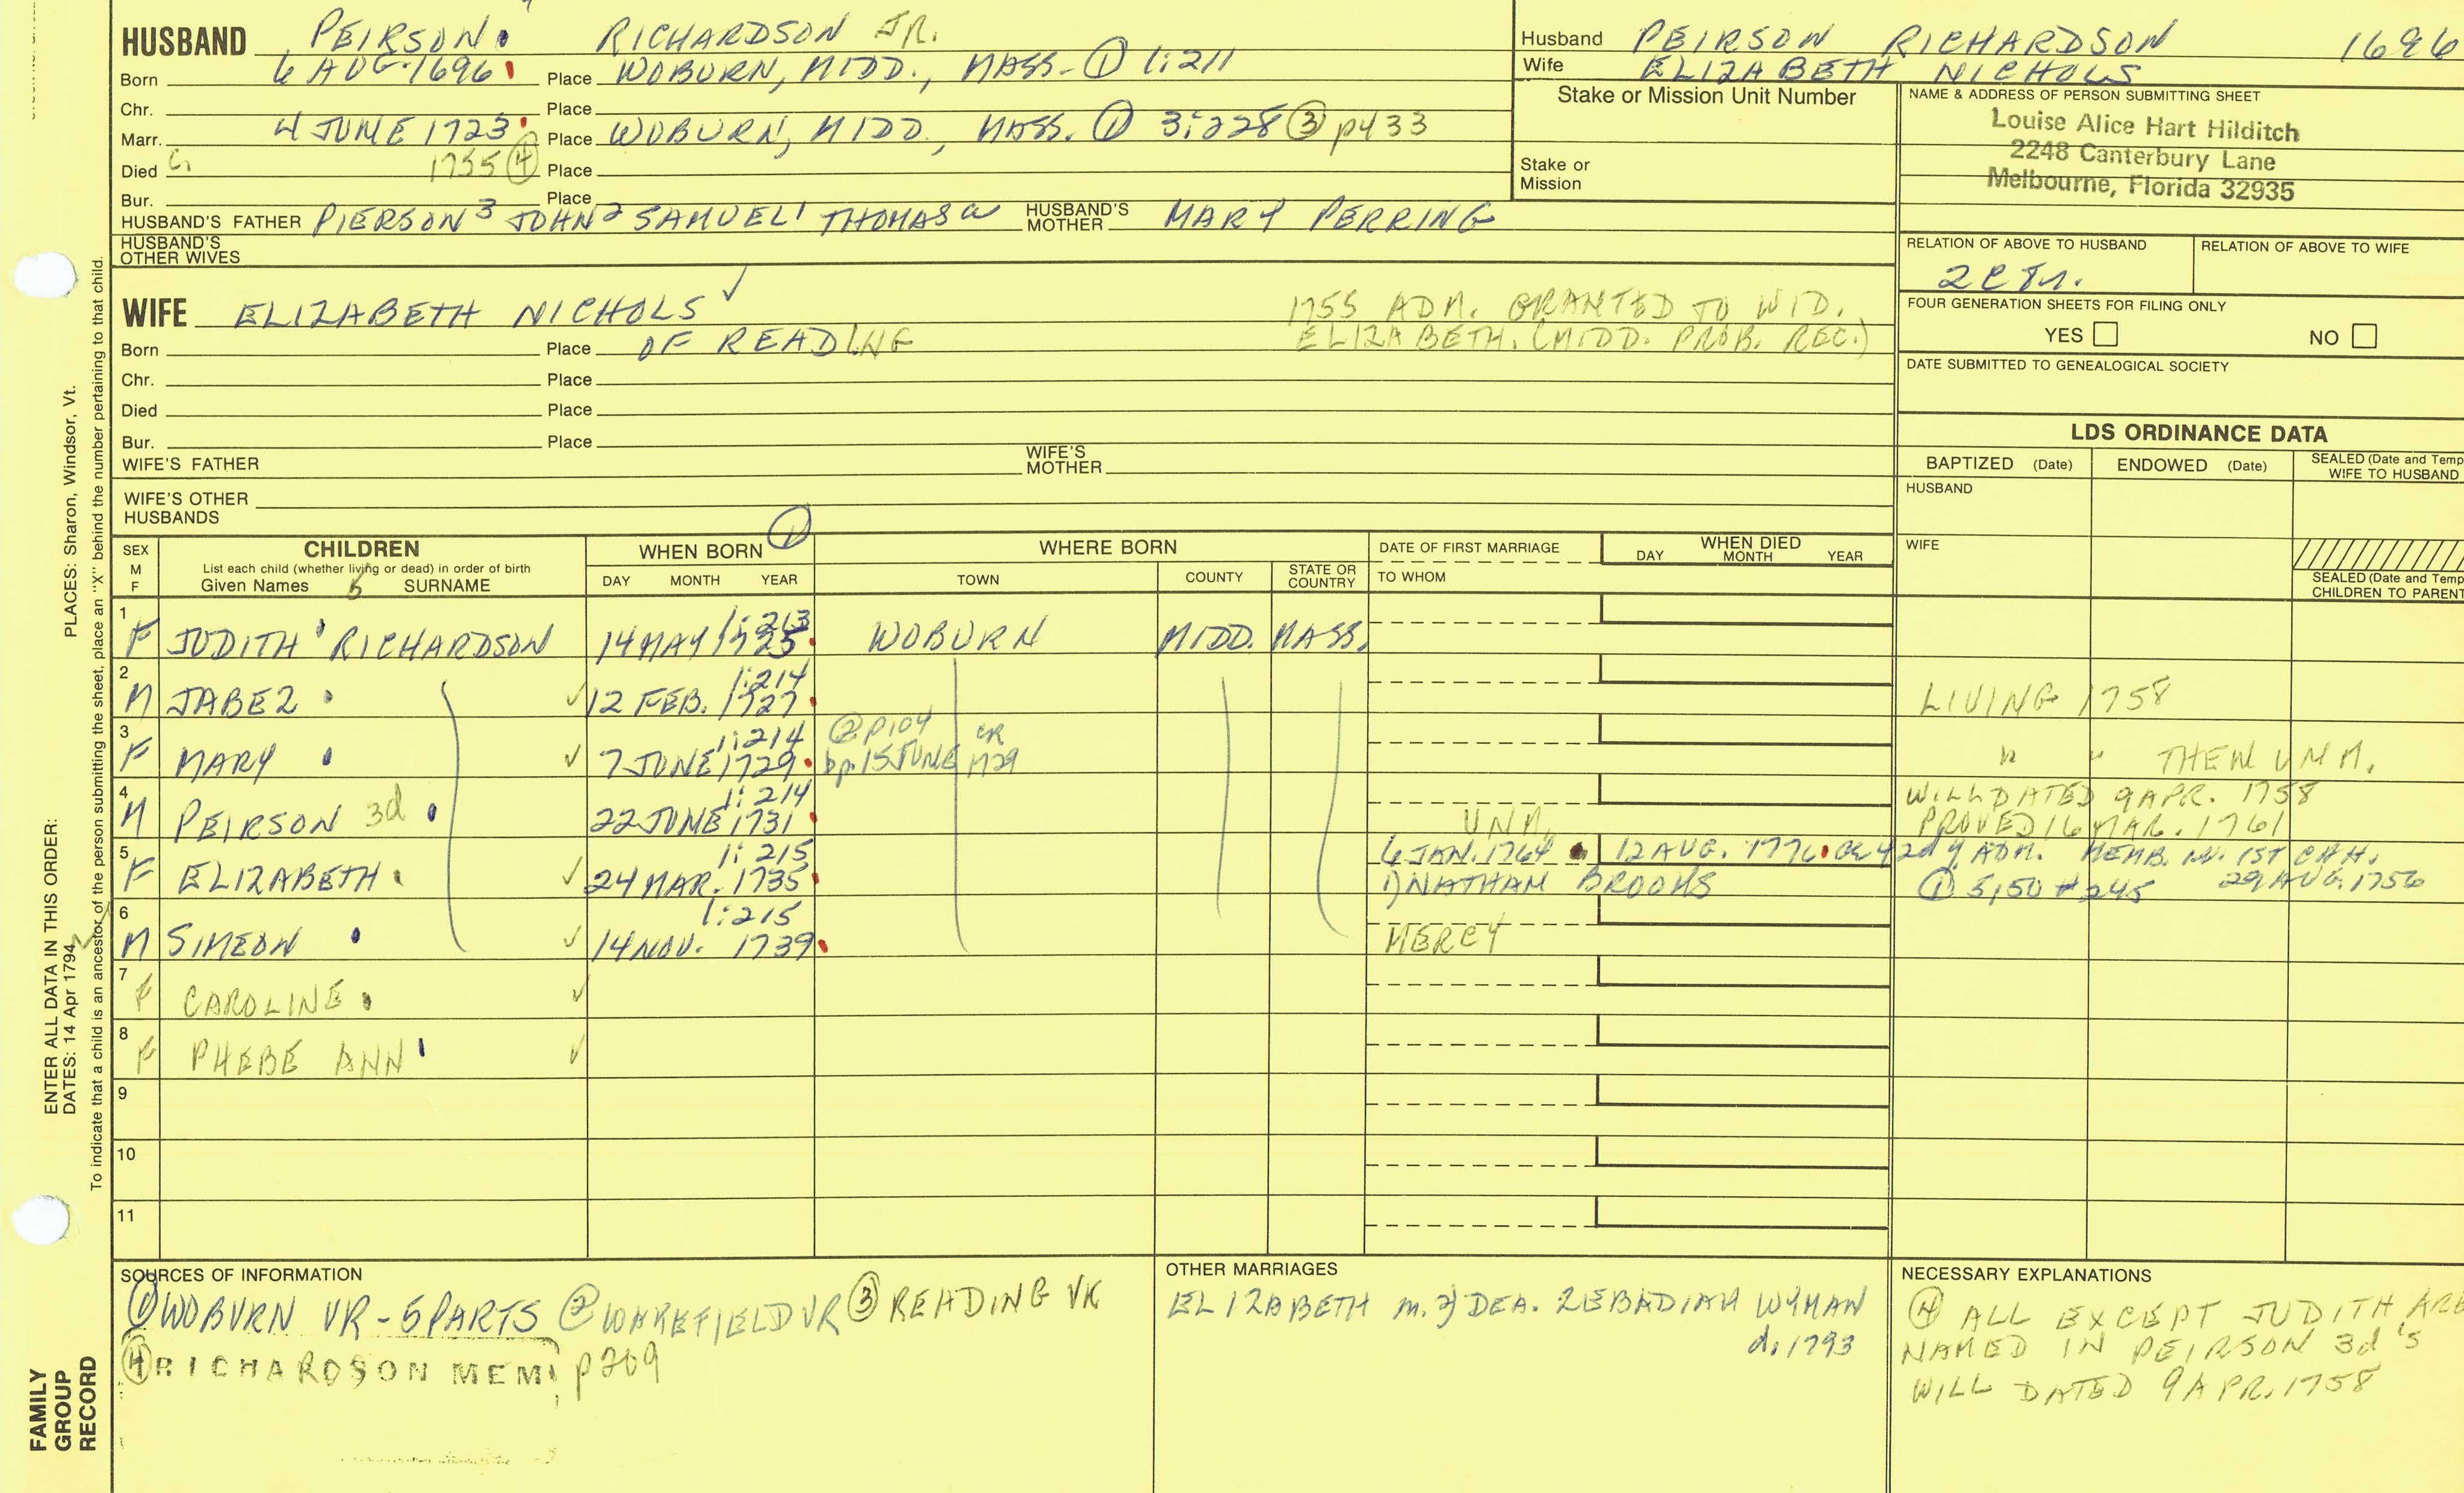 HUSBAND PEIRSON. RICHARDSON JR.
Born 6 AUG. 1696 Place WOBURN, MIDD., MASS. ① 1:211
Chr. Place
Marr. 4 JUNE 1723 Place WOBURN, MIDD., MASS. ① 3:228 ③ p433
Died 1755 ④ Place
Bur. Place
HUSBAND'S FATHER PIERSON³ JOHN² SAMUEL¹ THOMASᵃ HUSBAND'S MOTHER MARY PERRING
HUSBAND'S OTHER WIVES
Husband PEIRSON RICHARDSON 1696
Wife ELIZABETH NICHOLS
Stake or Mission Unit Number
Stake or Mission
NAME & ADDRESS OF PERSON SUBMITTING SHEET
Louise Alice Hart Hilditch
2248 Canterbury Lane
Melbourne, Florida 32935
RELATION OF ABOVE TO HUSBAND RELATION OF ABOVE TO WIFE
FOUR GENERATION SHEETS FOR FILING ONLY
YES NO
DATE SUBMITTED TO GENEALOGICAL SOCIETY
WIFE ELIZABETH NICHOLS ✓
1755 ADM. GRANTED TO WID.
ELIZABETH. (MIDD. PROB. REC.)
Born Place OF READING
Chr. Place
Died Place
Bur. Place
WIFE'S FATHER WIFE'S MOTHER
WIFE'S OTHER HUSBANDS
LDS ORDINANCE DATA
BAPTIZED (Date) ENDOWED (Date) SEALED (Date and Temp
WIFE TO HUSBAND
HUSBAND
WIFE
SEALED (Date and Temp
CHILDREN TO PARENT
SEX M F
CHILDREN
List each child (whether living or dead) in order of birth
Given Names SURNAME
WHEN BORN ①
DAY MONTH YEAR
WHERE BORN
TOWN COUNTY STATE OR COUNTRY
DATE OF FIRST MARRIAGE
TO WHOM
WHEN DIED
DAY MONTH YEAR
1 F JUDITH RICHARDSON 14 MAY 1725 1:213 WOBURN MIDD. MASS.
2 M JABEZ ✓ 12 FEB. 1727 1:214 LIVING 1758
3 F MARY ✓ 7 JUNE 1729 1:214 ② p104 CR bp. 15 JUNE 1729 " " THEN UNM.
4 M PEIRSON 3d 22 JUNE 1731 1:214 UNM. WILL DATED 9 APR. 1758
PROVED 16 MAR. 1761
5 F ELIZABETH ✓ 24 MAR. 1735 1:215 6 JAN. 1764 12 AUG. 1776 ADM. MEMB. 1ST CHH.
1) NATHAN BROOKS ① 5,50 # 245 29 AUG. 1756
6 M SIMEON ✓ 14 NOV. 1739 1:215 MERCY
7 F CAROLINE ✓
8 F PHEBE ANN ✓
9
10
11
SOURCES OF INFORMATION
① WOBURN VR - 5 PARTS ② WAKEFIELD VR ③ READING VR
④ RICHARDSON MEM. p209
OTHER MARRIAGES
ELIZABETH m. 2) DEA. ZEBADIAH WYMAN
d. 1793
NECESSARY EXPLANATIONS
④ ALL EXCEPT JUDITH ARE
NAMED IN PEIRSON 3d's
WILL DATED 9 APR. 1758
PLACES: Sharon, Windsor, Vt.
ENTER ALL DATA IN THIS ORDER:
DATES: 14 Apr 1794
To indicate that a child is an ancestor of the person submitting the sheet, place an "X" behind the number pertaining to that child.
FAMILY
GROUP
RECORD